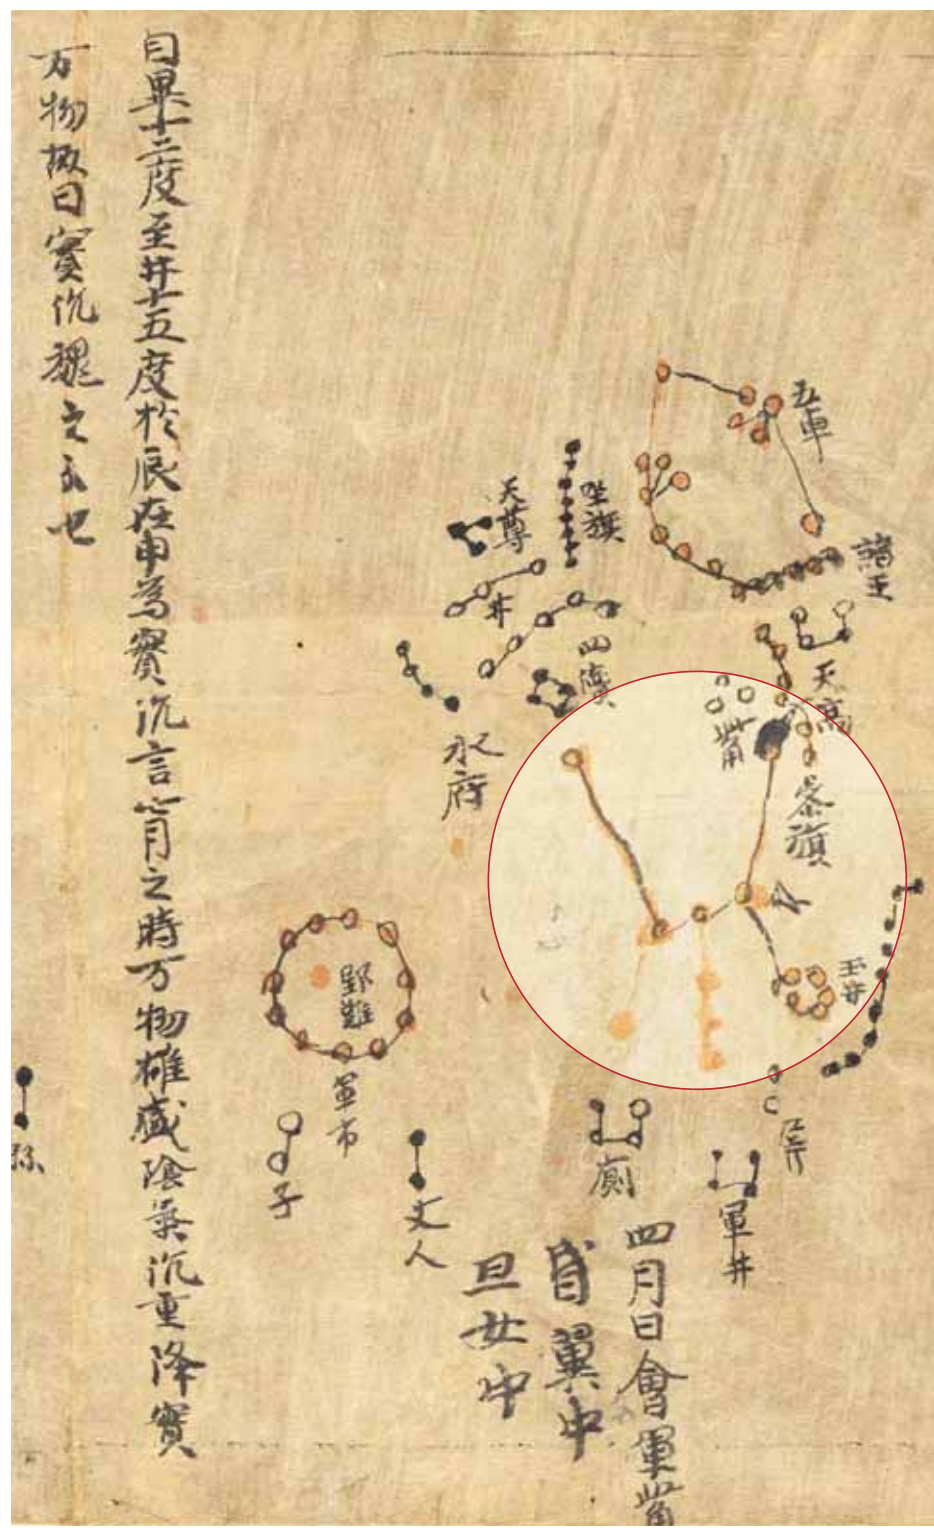 五車
諸王
天高
坐旗
天尊
井
四瀆
觜
參旗
水府
玉井
野雞
軍市
屏
軍井
廁
丈人
子
孫
四月日會畢觜
昏翼中
旦女中
自畢十二度至井十五度於辰在申為實沉言七月之時万物雄盛陰氣沉重降實
万物故曰實沉魏之分也